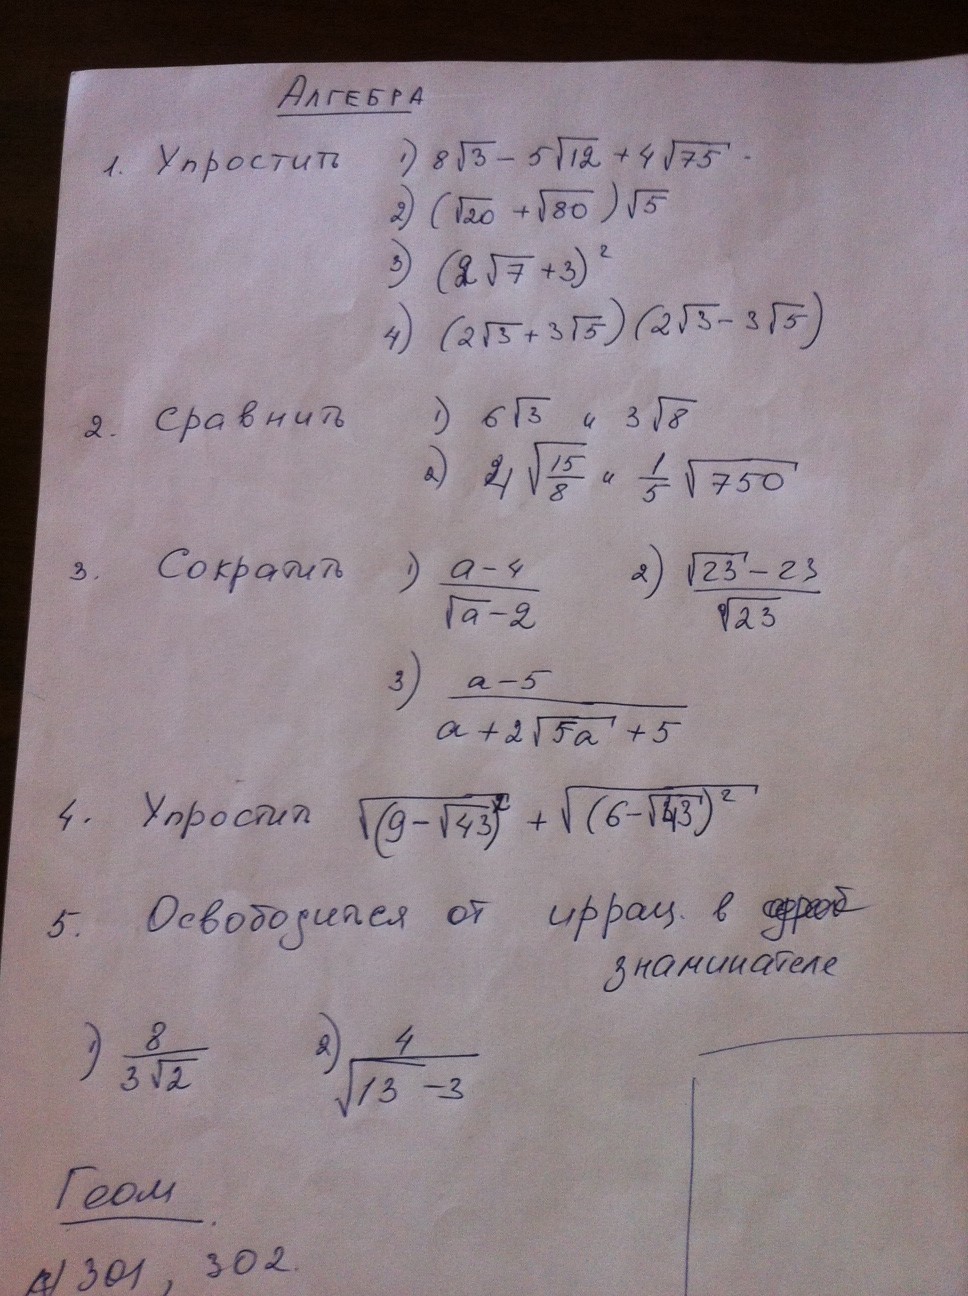 АЛГЕБРА
1. Упростить 1) 8√3 - 5√12 + 4√75 .
2) (√20 + √80)√5
3) (2√7 + 3)²
4) (2√3 + 3√5)(2√3 - 3√5)
2. Сравнить 1) 6√3 и 3√8
2) 2√(15/8) и 1/5 √750
3. Сократить 1) (a-4)/(√a-2) 2) (√23-23)/√23
3) (a-5)/(a+2√5a+5)
4. Упростить √(9-√43)² + √(6-√43)²
5. Освободиться от иррац. в
знаминателе
1) 8/(3√2) 2) 4/(√13-3)
Геом.
301, 302.